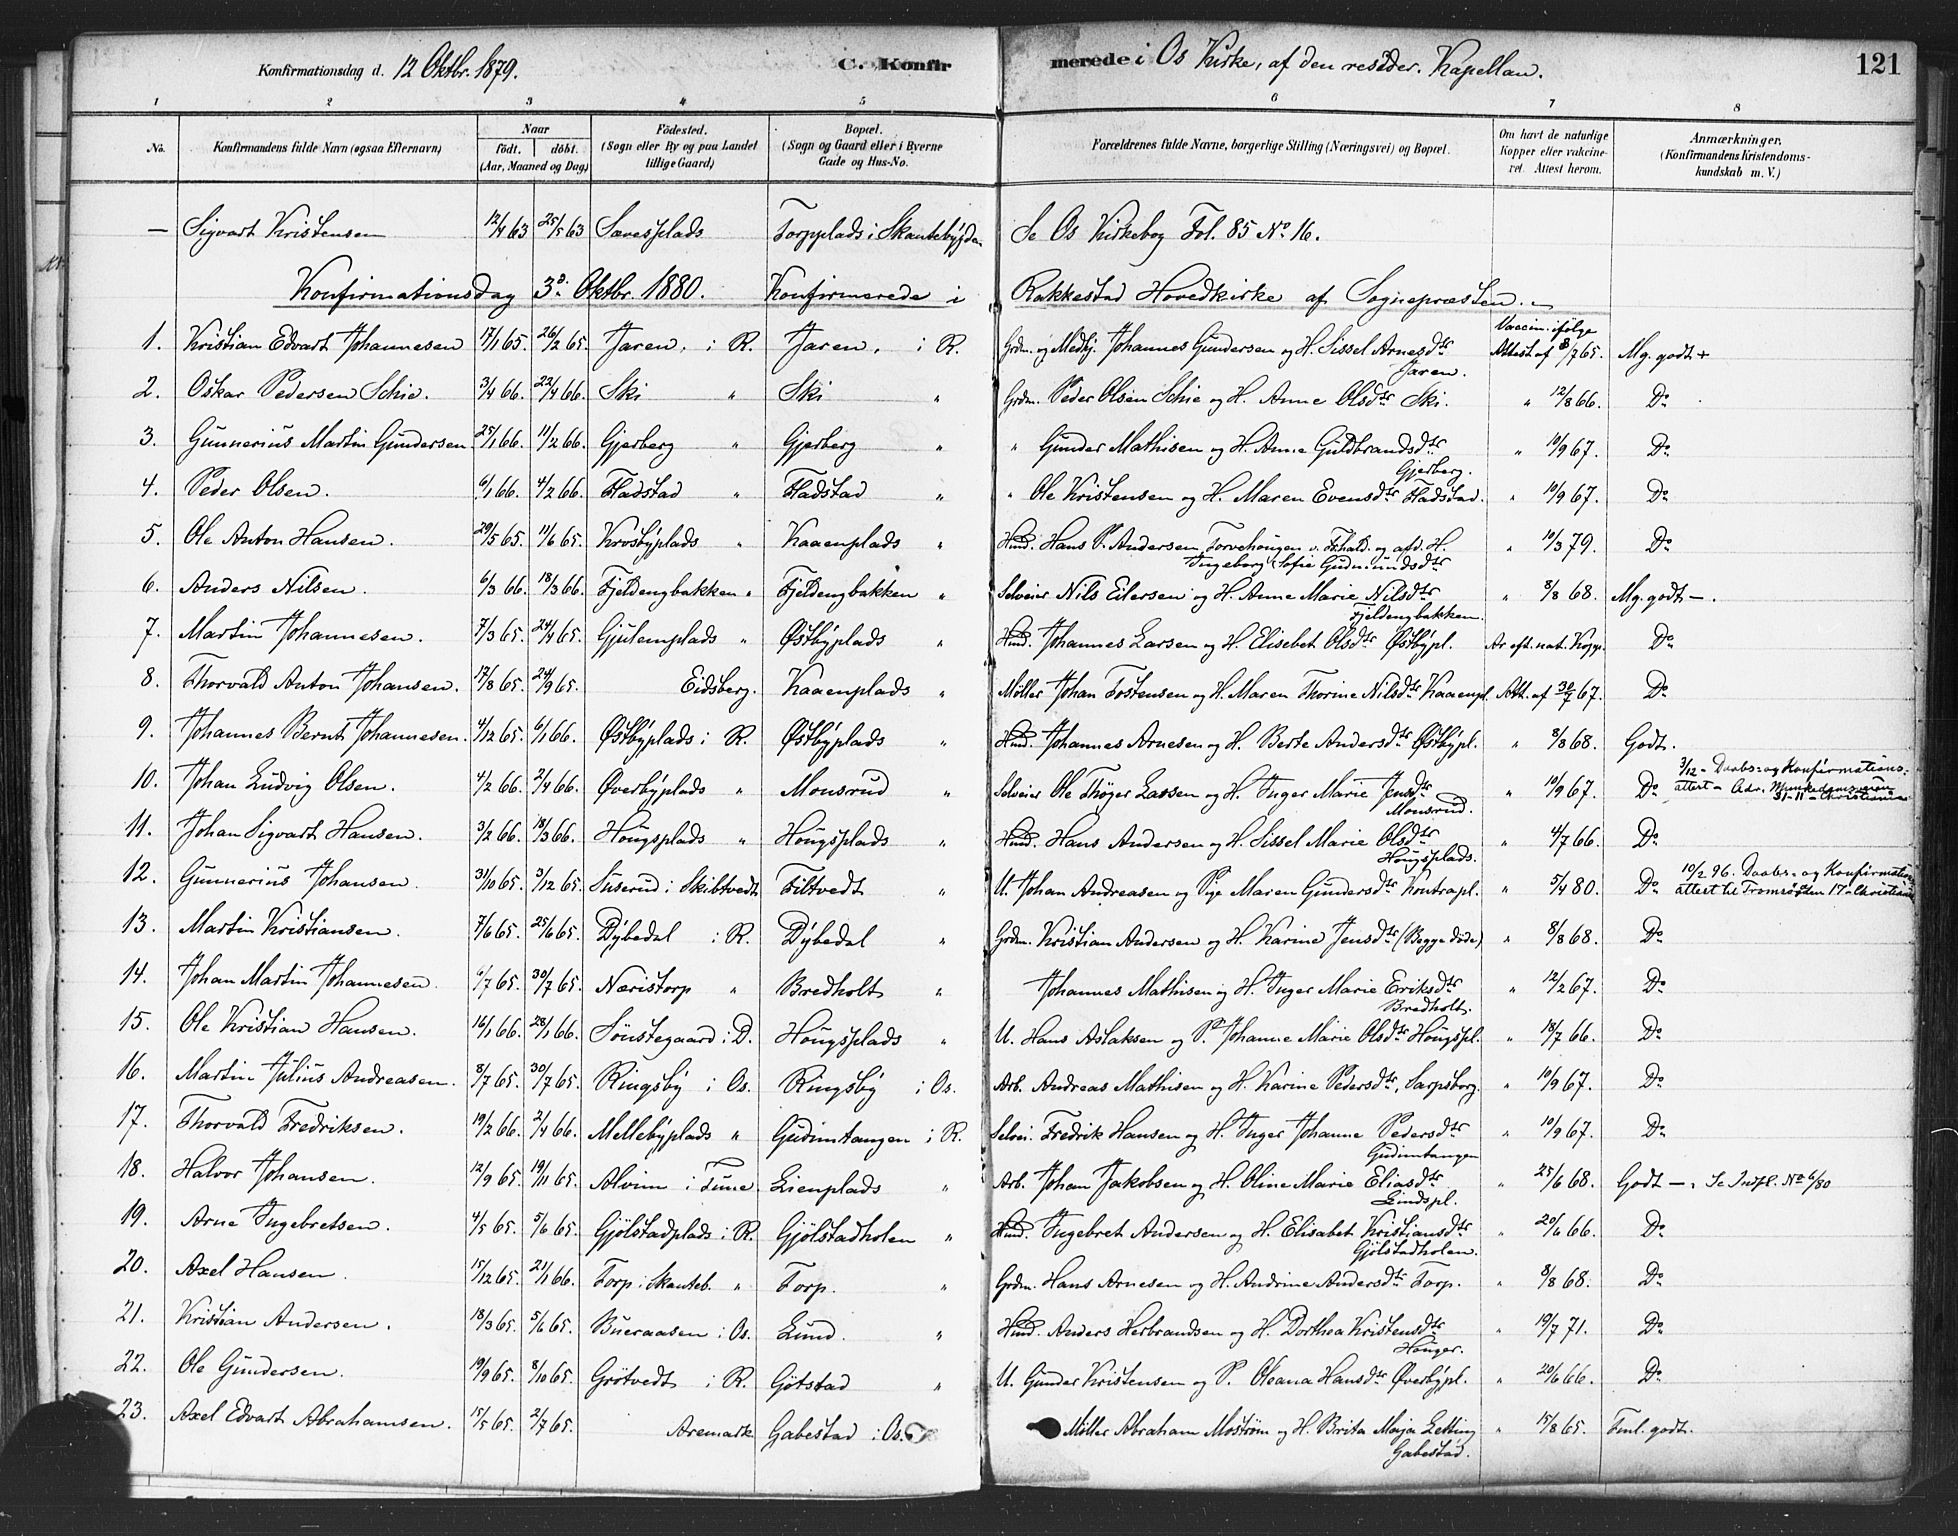 Konfirmationsdag d. 12 Oktbr. 1879. C. Konfirmerede i Os Kirke, af den resider. Kapellan. 121
1 2 3 4 5 6 7 8
No. Konfirmandens fulde Navn (ogsaa Efternavn) Naar født. døbt. (Aar, Maaned og Dag) Fødested. (Sogn eller By og paa Landet tillige Gaard) Bopæl. (Sogn og Gaard eller i Byerne Gade og Hus-No. Forældrenes fulde Navne, borgerlige Stilling (Næringsvei) og Bopæl. Om havt de naturlige Kopper eller vakcineret. Attest herom. Anmærkninger. (Konfirmandens Kristendomskundskab m. V.)
— Sigvart Kristensen 12/4 63 25/5 63 Savesplads Torpplads i Skautebygden Se Os Kirkebog Fol. 85 No 16.
Konfirmationsdag 3die Oktbr. 1880. Konfirmerede i Rakkestad Hovedkirke af Sognepræsten.
1. Kristian Edvart Johannesen 17/1 65. 26/2 65. Jaren, i R. Jaren, i R. Grdm. og Medhj. Johannes Gundersen og H. Sissel Arnesdtr Jaren. Vaccin. ifølge Attest af 8/7 65. Mg. godt +
2. Oskar Pedersen Schie. 3/4 66. 22/4 66. Ski " Ski " Grdm. Peder Olsen Schie og H. Anne Olsdtr Ski. " 12/8 66. Do
3. Gunnerius Martin Gundersen 25/1 66. 11/2 66. Gjerberg " Gjerberg " " Gunder Mathisen og H. Anne Guldbrandsdtr Gjerberg. " 10/9 67. Do
4. Peder Olsen. 6/1 66. 4/2 66. Fladstad " Fladstad " " Ole Kristensen og H. Maren Evensdtr Fladstad. " 10/9 67. Do
5. Ole Anton Hansen. 29/5 65. 11/6 65. Krosbyplads " Kaaenplads " Hmd. Hans P. Andersen, Torvehougen v. Frhald. og afd. H. Ingeborg Sofie Gudmundsdtr " 10/3 79. Do
6. Anders Nilsen. 6/3 66. 18/3 66. Fjeldengbakken " Fjeldengbakken " Selveier Nils Eilersen og H. Anne Marie Nilsdtr Fjeldengbakken. " 8/8 68. Mg. godt —.
7. Martin Johannesen. 7/3 65. 24/4 65. Gjulemplads " Østbyplads " Hmd. Johannes Larsen og H. Elisebet Olsdtr Østbypl. Ar eft. nat. Kopp. Do
8. Thorvald Anton Johansen. 17/8 65. 24/9 65. Eidsberg. Kaaenplads " Møller Johan Tostensen og H. Maren Thorine Nilsdtr Kaaenpl. Att. af 30/7 67. Do
9. Johannes Bernt Johannesen. 4/12 65. 6/1 66. Østbyplads i R. Østbyplads " Hmd. Johannes Arnesen og H. Berte Andersdtr Østbypl. " 8/8 68. Godt.
10. Johan Ludvig Olsen. 4/2 66. 2/4 66. Øverbyplads " Monsrud " Selveier Ole Thøger Larsen og H. Inger Marie Jensdtr Monsrud. " 10/9 67. Do 3/12 - Daabs- og Konfirmationsattest - Adr. Munkedamsveien 31-II - Christiania
11. Johan Sigvart Hansen. 3/2 66. 18/3 66. Hougsplads " Hougsplads " Hmd. Hans Andersen og H. Sissel Marie Olsdtr Hougsplads. " 4/7 66. Do
12. Gunnerius Johansen. 31/10 65. 3/12 65. Suserud i Skibtvedt Filtvedt " U. Johan Andreasen og Pige Maren Gundersdtr Koutrapl. " 5/4 80. Do 10/2 96. Daabs- og Konfirmationsattest til Tromsøgden 17 - Christiania
13. Martin Kristiansen. 7/6 65. 25/6 65. Dybedal i R. Dybedal " Grdm. Kristian Andersen og H. Karine Jensdtr (Begge døde) " 8/8 68. Do
14. Johan Martin Johannesen. 6/7 65. 30/7 65. Næristorp " Bredholt " Johannes Mathisen og H. Inger Marie Eriksdtr Bredholt. " 12/2 67. Do
15. Ole Kristian Hansen. 16/1 66. 28/1 66. Sønstegaard i D. Hougsplads " U. Hans Aslaksen og P. Johanne Marie Olsdtr Hougspl. " 18/7 66. Do
16. Martin Julius Andreasen. 8/7 65. 30/7 65. Ringsby i Os. Ringsby i Os. Arb. Andreas Mathisen og H. Karine Pedersdtr, Sarpsborg. " 10/9 67. Do
17. Thorvald Fredriksen. 19/2 66. 2/4 66. Mellebyplads " Gudimtangen i R. Selvei. Fredrik Hansen og H. Inger Johanne Pedersdtr Gudimtangen " 10/9 67. Do
18. Halvor Johansen. 12/9 65. 19/11 65. Alvim i Tune Lienplads " Arb. Johan Jakobsen og H. Oline Marie Eliasdtr Lindspl. " 25/6 68. Godt —. Se Indfl. No 6/80
19. Arne Ingebretsen. 4/5 65. 5/6 65. Gjølstadplads i R. Gjølstadholen " Hmd. Ingebret Andersen og H. Elisabet Kristiansdtr Gjølstadholen. " 20/6 66. Do
20. Axel Hansen. 15/12 65. 21/1 66. Torp i Skauteb. " Torp. " Grdm. Hans Arnesen og H. Andrine Andersdtr Torp. " 8/8 68. Do
21. Kristian Andersen. 18/3 65. 5/6 65. Bueraasen i Os. Lund. " Hmd. Anders Herbrandsen og H. Dorthea Kristensdtr Houger. " 19/7 71. Do
22. Ole Gundersen. 19/9 65. 8/10 65. Grøtvedt i R. Gøtstad " U. Gunder Kristensen og P. Oleana Hansdtr Øverbypl. " 20/6 66. Do
23. Axel Edvart Abrahamsen. 15/5 65. 2/7 65. Aremark Gabestad i Os. Møller Abraham Moström og H. Brita Maja Zetting Gabestad. " 15/8 65. Tml. godt.